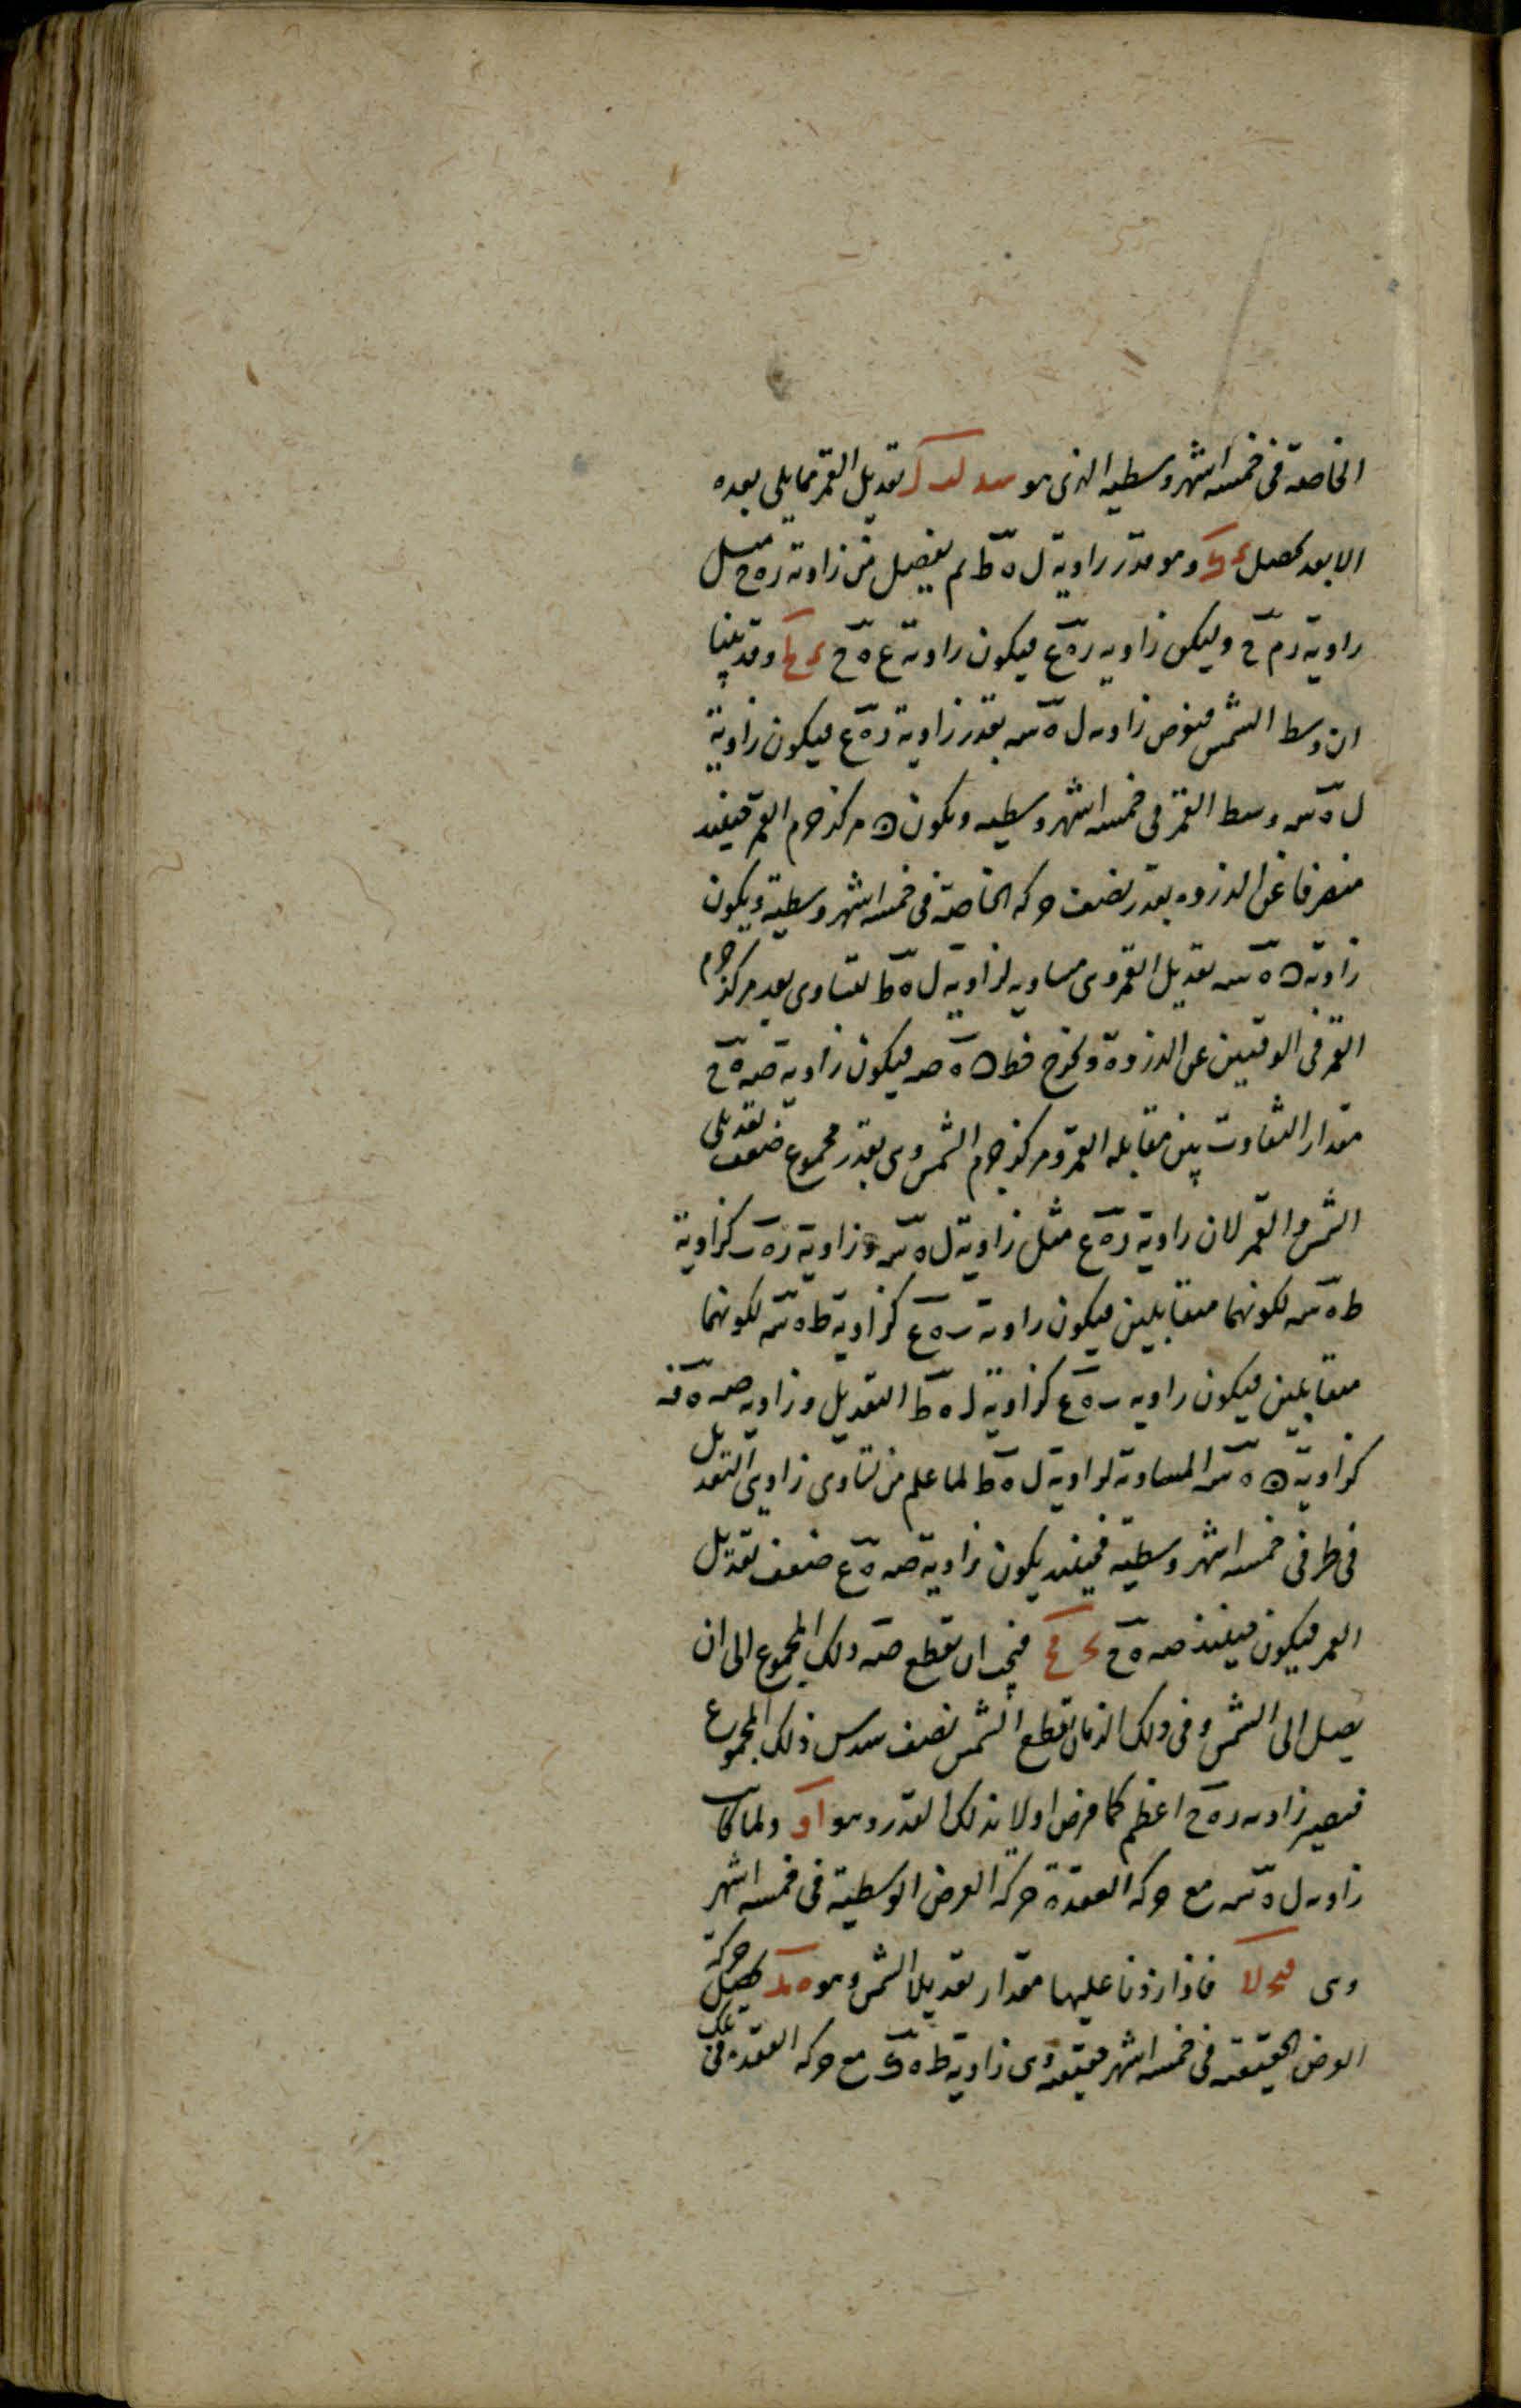 الخاصة فى خمسة اشهر وسطية الذى هو سد لد ك تعديل القمر مما يلى بعده
الابعد يحصل وهو قدر زاوية ل ه ط ثم يفصل من زاوية ر ه ح مثل
زاوية ر م ح وليكن زاوية ر ه ع فيكون زاوية ع ه ح وقد بينا
ان وسط الشمس زاوية ل ه س بقدر زاوية ر ه ع فيكون زاوية
ل ه س وسط القمر فى خمسة اشهر وسطية ويكون ں مركز جرم القمر حينئذ
منصرفا عن الذروة بقدر نصف حركة الخاصة فى خمسة اشهر وسطية ويكون
زاوية ں ه س تعديل القمر وهى مساوية لزاوية ل ه ط لتساوى بعد مركز جرم
القمر فى الوقتين عن الذروة ونخرج خط ں ه صه فيكون زاوية صه ه ح
مقدار التفاوت بين مقابلة القمر ومركز جرم الشمس وهى بقدر مجموع ضعف تعديلى
الشمس والقمر لان زاوية ر ه ع مثل زاوية ل ه س وزاوية ر ه ب كزاوية
ط ه س لكونهما متقابلين فيكون زاوية ب ه ع كزاوية ط ه س لكونهما
متقابلين فيكون زاوية ب ه ع كزاوية ل ه ط التعديل وزاوية صه ه
كزاوية ں ه س المساوية لزاوية ل ه ط لما علم من تساوى زاويتى التعديل
فى طرفى خمسة اشهر وسطية فحينئذ يكون زاوية صه ه ع ضعف تعديل
القمر فيكون حينئذ صه ه ح فيجب ان يقطع صه ذلك المجموع الى ان
يصل الى الشمس وفى ذلك الزمان يقطع الشمس نصف سدس ذلك المجموع
فتصير زاوية ر ه ح اعظم كما فرض اولا بذلك القدر وهو ا و ولما كانت
زاوية ل ه س مع حركة العقدة حركة العرض الوسطية فى خمسة اشهر
وهى فاذا زدنا عليها مقدار تعديل الشمس وهو يحصل حركة
العرض الحقيقية فى خمسة اشهر حقيقية وهى زاوية ط ه مع حركة العقدة فى تلك